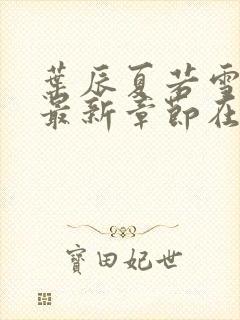 葉辰夏若雪
最新章節在
寶田妃世